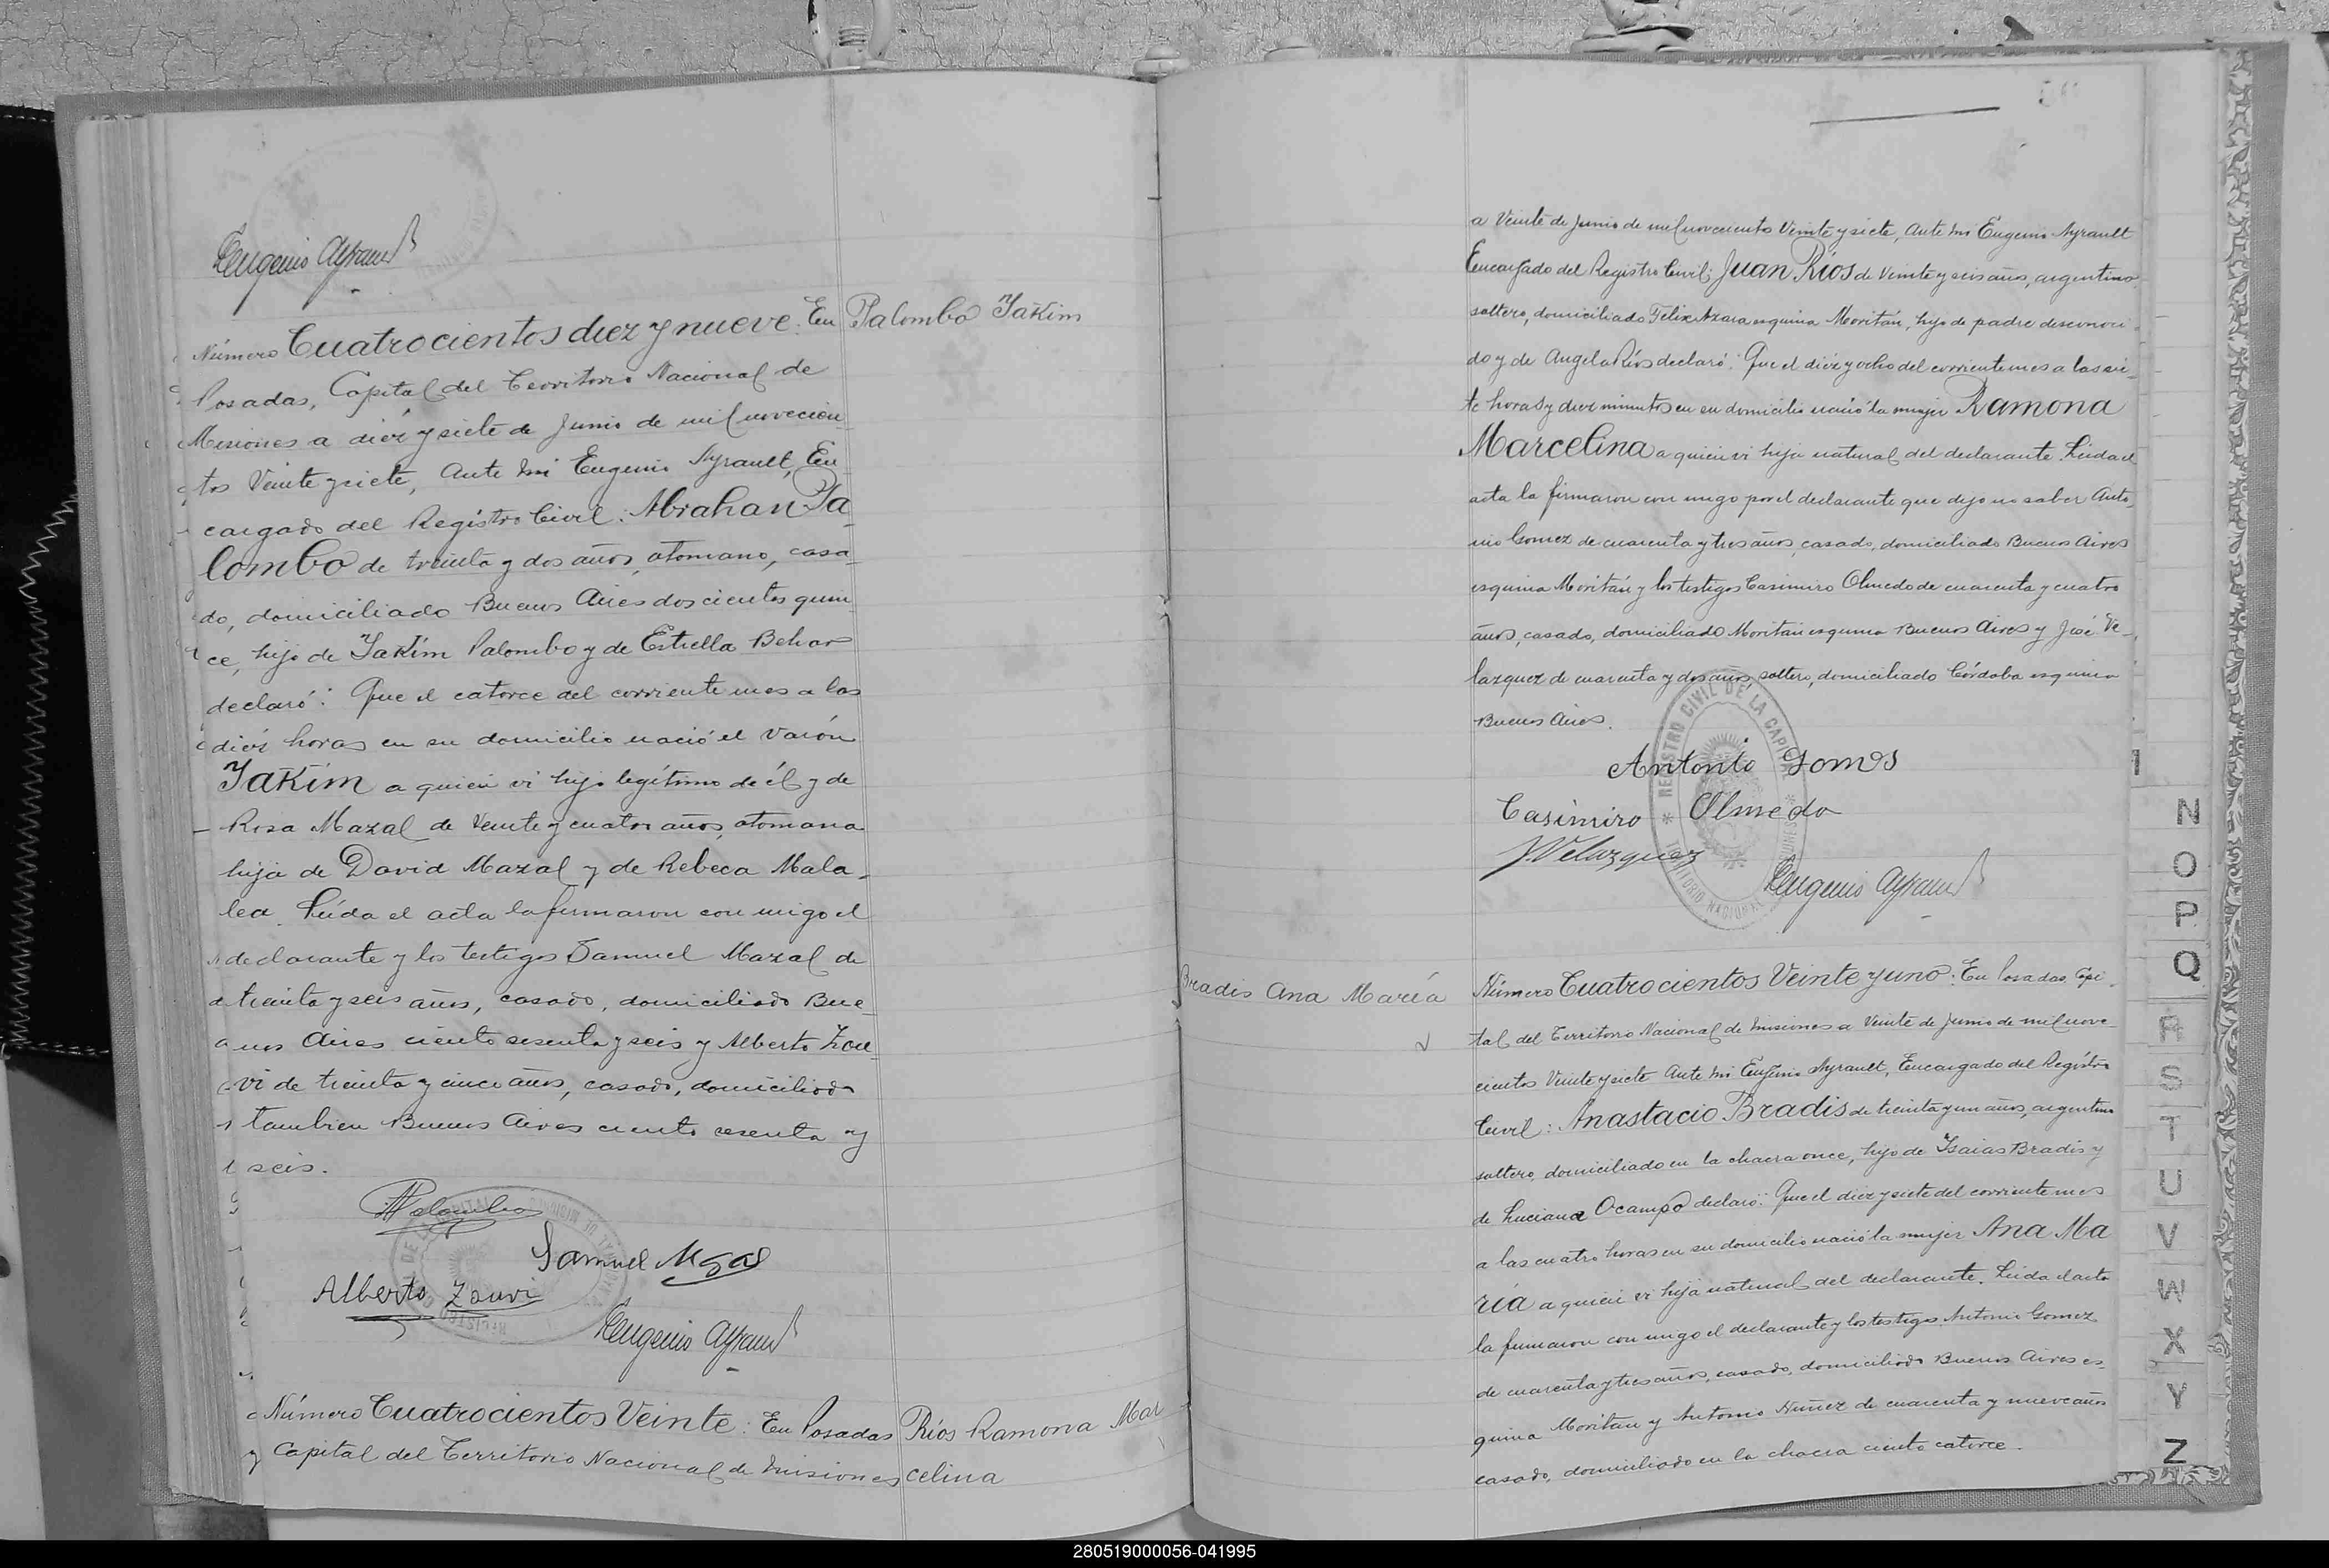 Eugenio Ayrault
Número Cuatrocientos diez y nueve: En
Palombo Jakim
Posadas, Capital del Territorio Nacional de
Misiones a diez y siete de Junio de mil novecien
tos Veinte y siete, Ante mi Eugenio Ayrault, En
cargado del Registro Civil: Abrahan Pa
lombo de treinta y dos años, otomano, casa
do, domiciliado Buenos Aires doscientos quin
ce, hijo de Jakim Palombo y de Estrella Behar
declaró: Que el catorce del corriente mes a las
diez horas en su domicilio nació el varón
Jakim a quien vi hijo legítimo de él y de
Rosa Mazal de Veinte y cuatro años, otomana
hija de David Mazal y de Rebeca Mala-
lea. Leída el acta la firmaron con migo el
declarante y los testigos Samuel Mazal de
treinta y seis años, casado, domiciliado Bue
nos Aires ciento sesenta y seis y Alberto Zou
vi de treinta y cinco años, casado, domiciliado
tambien Buenos Aires ciento sesenta y
seis.
APalombo
Samuel
Alberto Zouvi
Eugenio Ayrault
Número Cuatrocientos Veinte: En Posadas
Capital del Territorio Nacional de Misiones
Ríos Ramona Mar
celina
a Veinte de Junio de mil novecientos Veinte y siete, Ante mi Eugenio Ayrault
Encargado del Registro Civil: Juan Ríos de Veinte y seis años, argentino,
soltero, domiciliado Félix Azara esquina Moritán, hijo de padre desconoci
do y de Angela Ríos declaró: Que el diez y ocho del corriente mes a las sie
te horas y diez minutos en su domicilio nació la mujer Ramona
Marcelina a quien vi hija natural del declarante. Leida el
acta la firmaron con migo por el declarante que dijo no saber Anto
nio Gomez de cuarenta y tres años, casado, domiciliado Buenos Aires
esquina Moritán y los testigos Casimiro Olmedo de cuarenta y cuatro
años, casado, domiciliado Moritán esquina Buenos Aires y José Ve
lazquez de cuarenta y dos años, soltero, domiciliado Córdoba esquina
Buenos Aires.
REGISTRO CIVIL DE LA CAPITAL
Antonio Gomes
Casimiro Olmedo
J. Velazquez
Eugenio Ayrault
Bradis Ana María
Número Cuatrocientos Veinte y uno: En Posadas, Capi
tal del Territorio Nacional de Misiones a Veinte de Junio de mil nove
cientos Veinte y siete Ante mi Eugenio Ayrault, Encargado del Registro
Civil: Anastacio Bradis de treinta y un años, argentino
soltero, domiciliado en la chacra once, hijo de Isaias Bradis y
de Luciana Ocampo declaró: Que el diez y siete del corriente mes
a las cuatro horas en su domicilio nació la mujer Ana Ma
ría a quien vi hija natural del declarante. Leida el acta
la firmaron con migo el declarante y los testigos Antonio Gomez
de cuarenta y tres años, casado, domiciliado Buenos Aires es
quina Moritan y Antonio Nuñez de cuarenta y nueve años
casado, domiciliado en la chacra ciento catorce.
N
O
P
Q
R
S
T
U
V
W
X
Y
Z
280519000056-041995